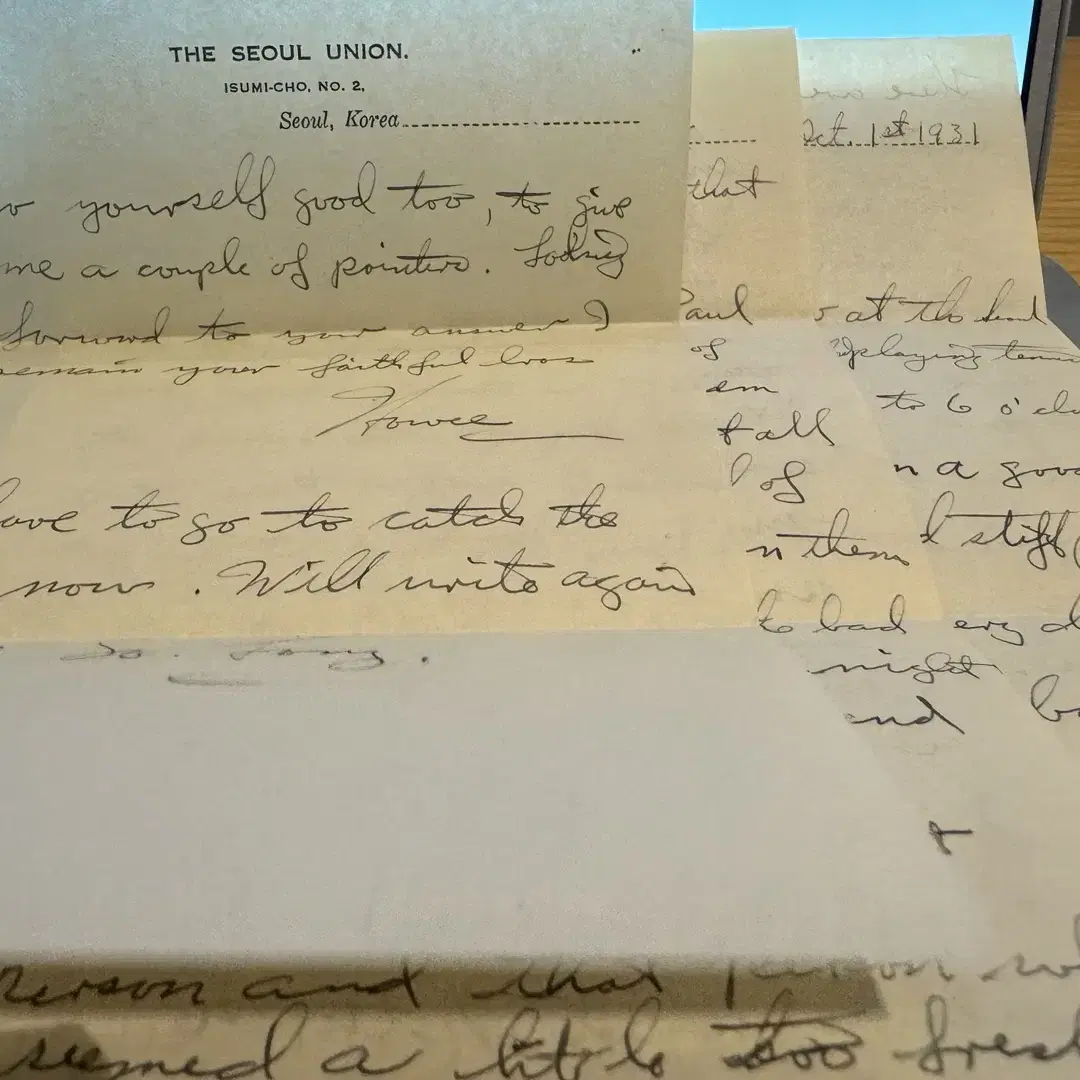 THE SEOUL UNION.
ISUMI-CHO, NO. 2,
Seoul, Korea
yourself good too, to give
me a couple of pointers. Looking
forward to your answer I
remain your faithful
have to go to catch the
now. Will write again
So Long.
that
Paul
of
em
t all
of
n them
to bad
night
and
Oct. 1st 1931
at the
playing tennis
to 6 o'clo
n a good
d stiff
person and that person
seemed a little too fresh